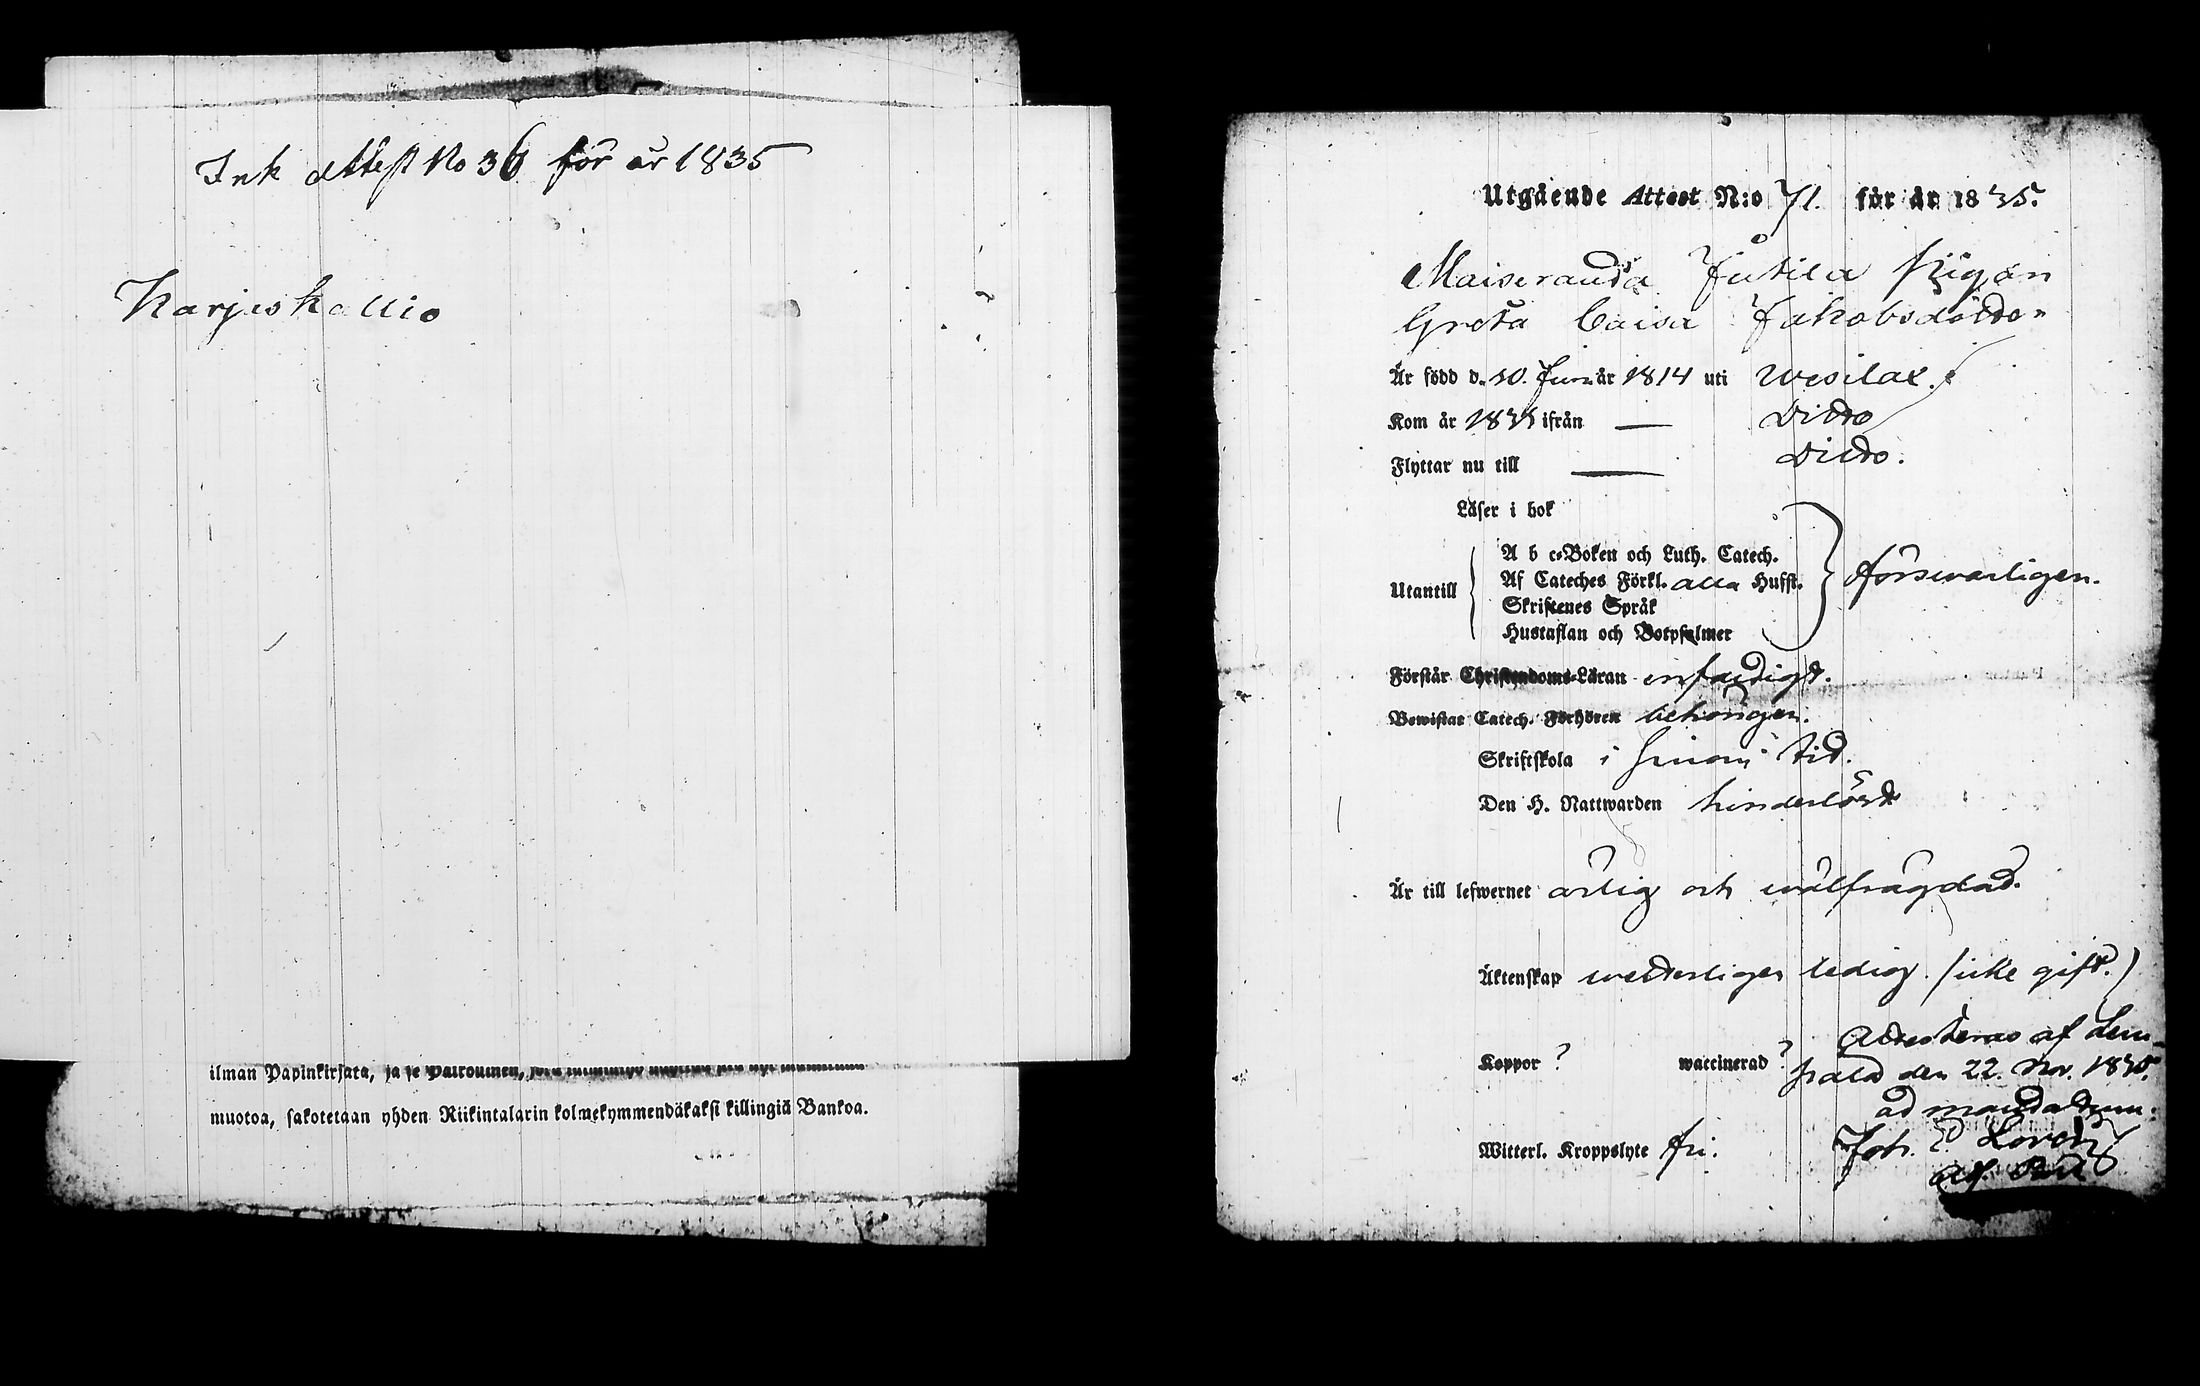 Ink Attest No 36 för år 1835
Karjuskallio
ilman Papinkirjata, ja se Patroumen,
muotoa, sakotetaan yhden Riikintalarin kolmekymmendäkaksi killingiä Bankoa.
Utgående Attest N:o 71. för år 1835.
Jutila Pigan
Greta Caisa Jakobsdotter
Är född d. 10. Juni år 1814 uti Wesilax.
Kom år 1835 ifrån — Ditto
Flyttar nu till — Ditto.
Läser i bok
Utantill
A b c-Boken och Luth. Catech.
Af Cateches Förkl. alla Hufst.
Skriftenes Språk
Hustaflan och Botpsalmer
försvarligen.
Förstår Christendoms-Läran enfaldigt.
Bewistat Catech. Förhören behörigen.
Skriftskola i sinom tid.
Den H. Nattwarden hinderlöst
Är till lefwernet ärlig och wälfrägdad.
Äktenskap wetterligen ledig. (icke gift.)
Attesteras af Lem-
Koppor ? waccinerad ? pälä den 22. Nov. 1835.
ad mandatum.
Witterl. Kroppslyte fri. Joh. E.